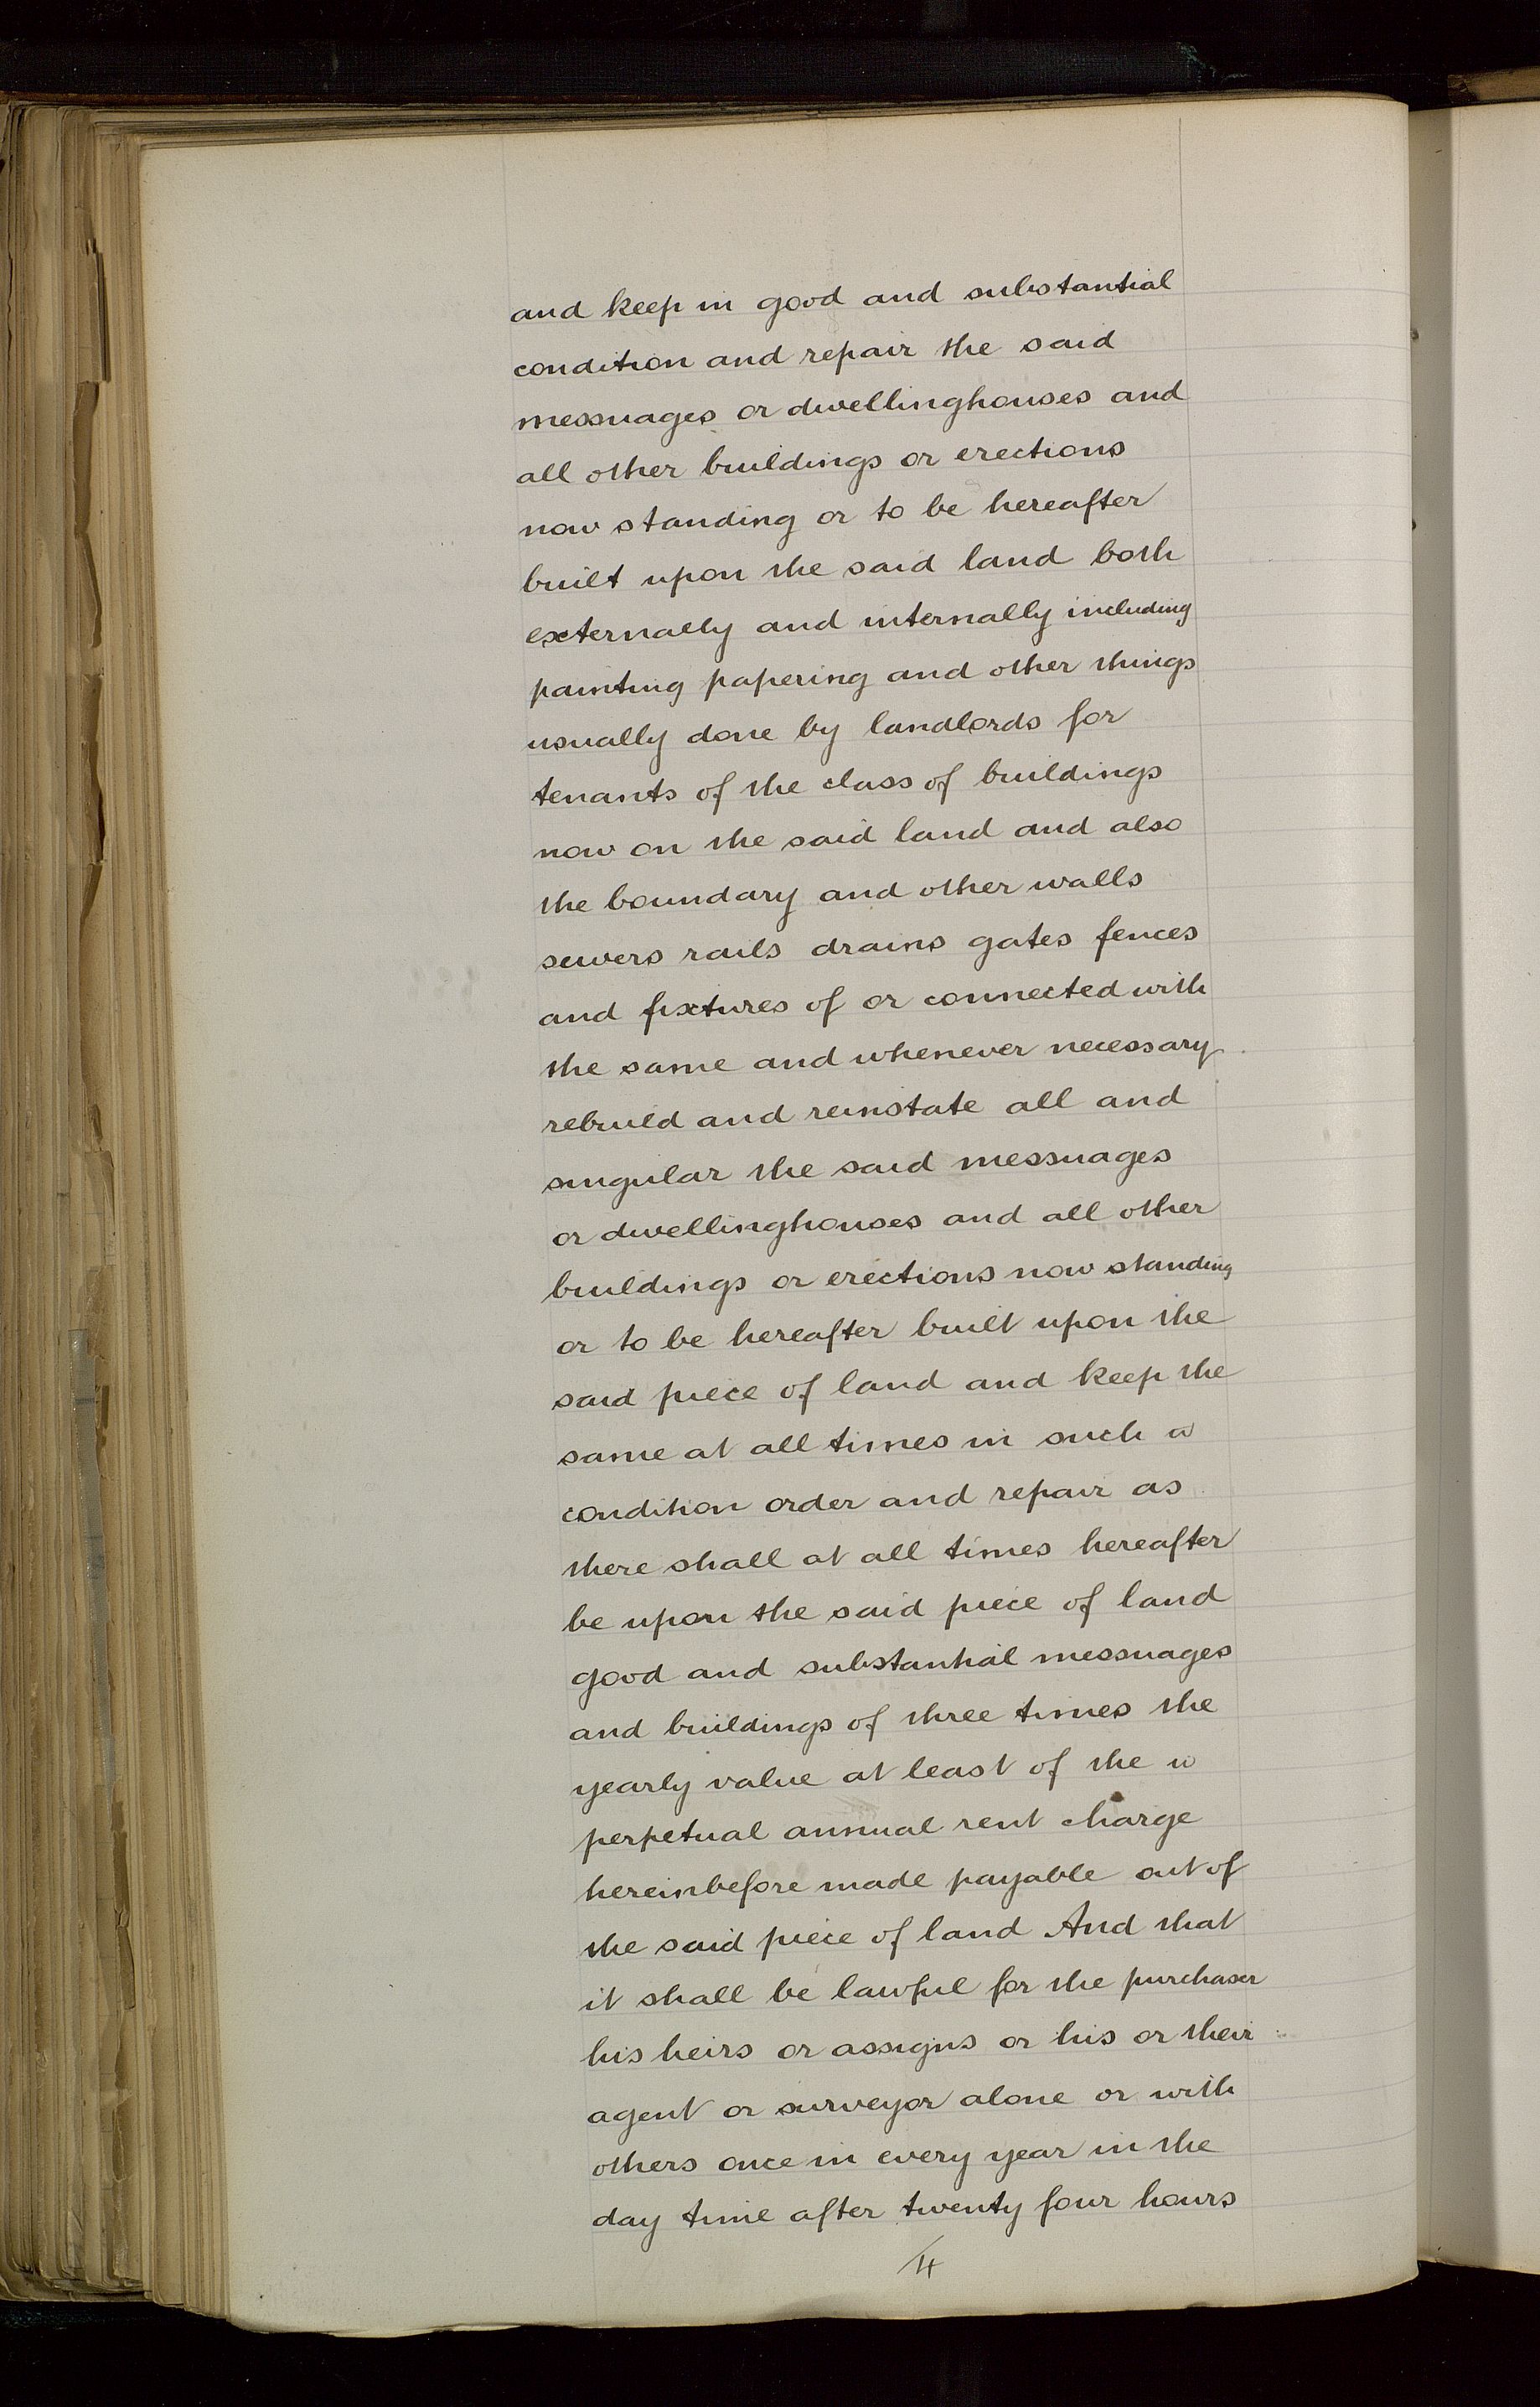 and keep in good and substantial
condition and repair the said
messuages or dwellinghouses and
all other buildings or erections
now standing or to be hereafter
built upon the said land both
externally and internally including
painting papering and other things
usually done by landlords for
tenants of the class of buildings
now on the said land and also
the boundary and other walls
sewers rails drains gates fences
and fixtures of or connected with
the same and whenever necessary
rebuild and reinstate all and
singular the said messuages
or dwellinghouses and all other
buildings or erections now standing
or to be hereafter built upon the
said piece of land and keep the
same at all times in such
condition order and repair as
there shall at all times hereafter
be upon the said piece of land
good and substantial messuages
and buildings of three times the
yearly value at least of the
perpetual annual rent charge
hereinbefore made payable out of
the said piece of land And that
it shall be lawful for the purchaser
his heirs or assigns or his or their
agent or surveyor alone or with
others once in every year in the
day time after twenty four hours